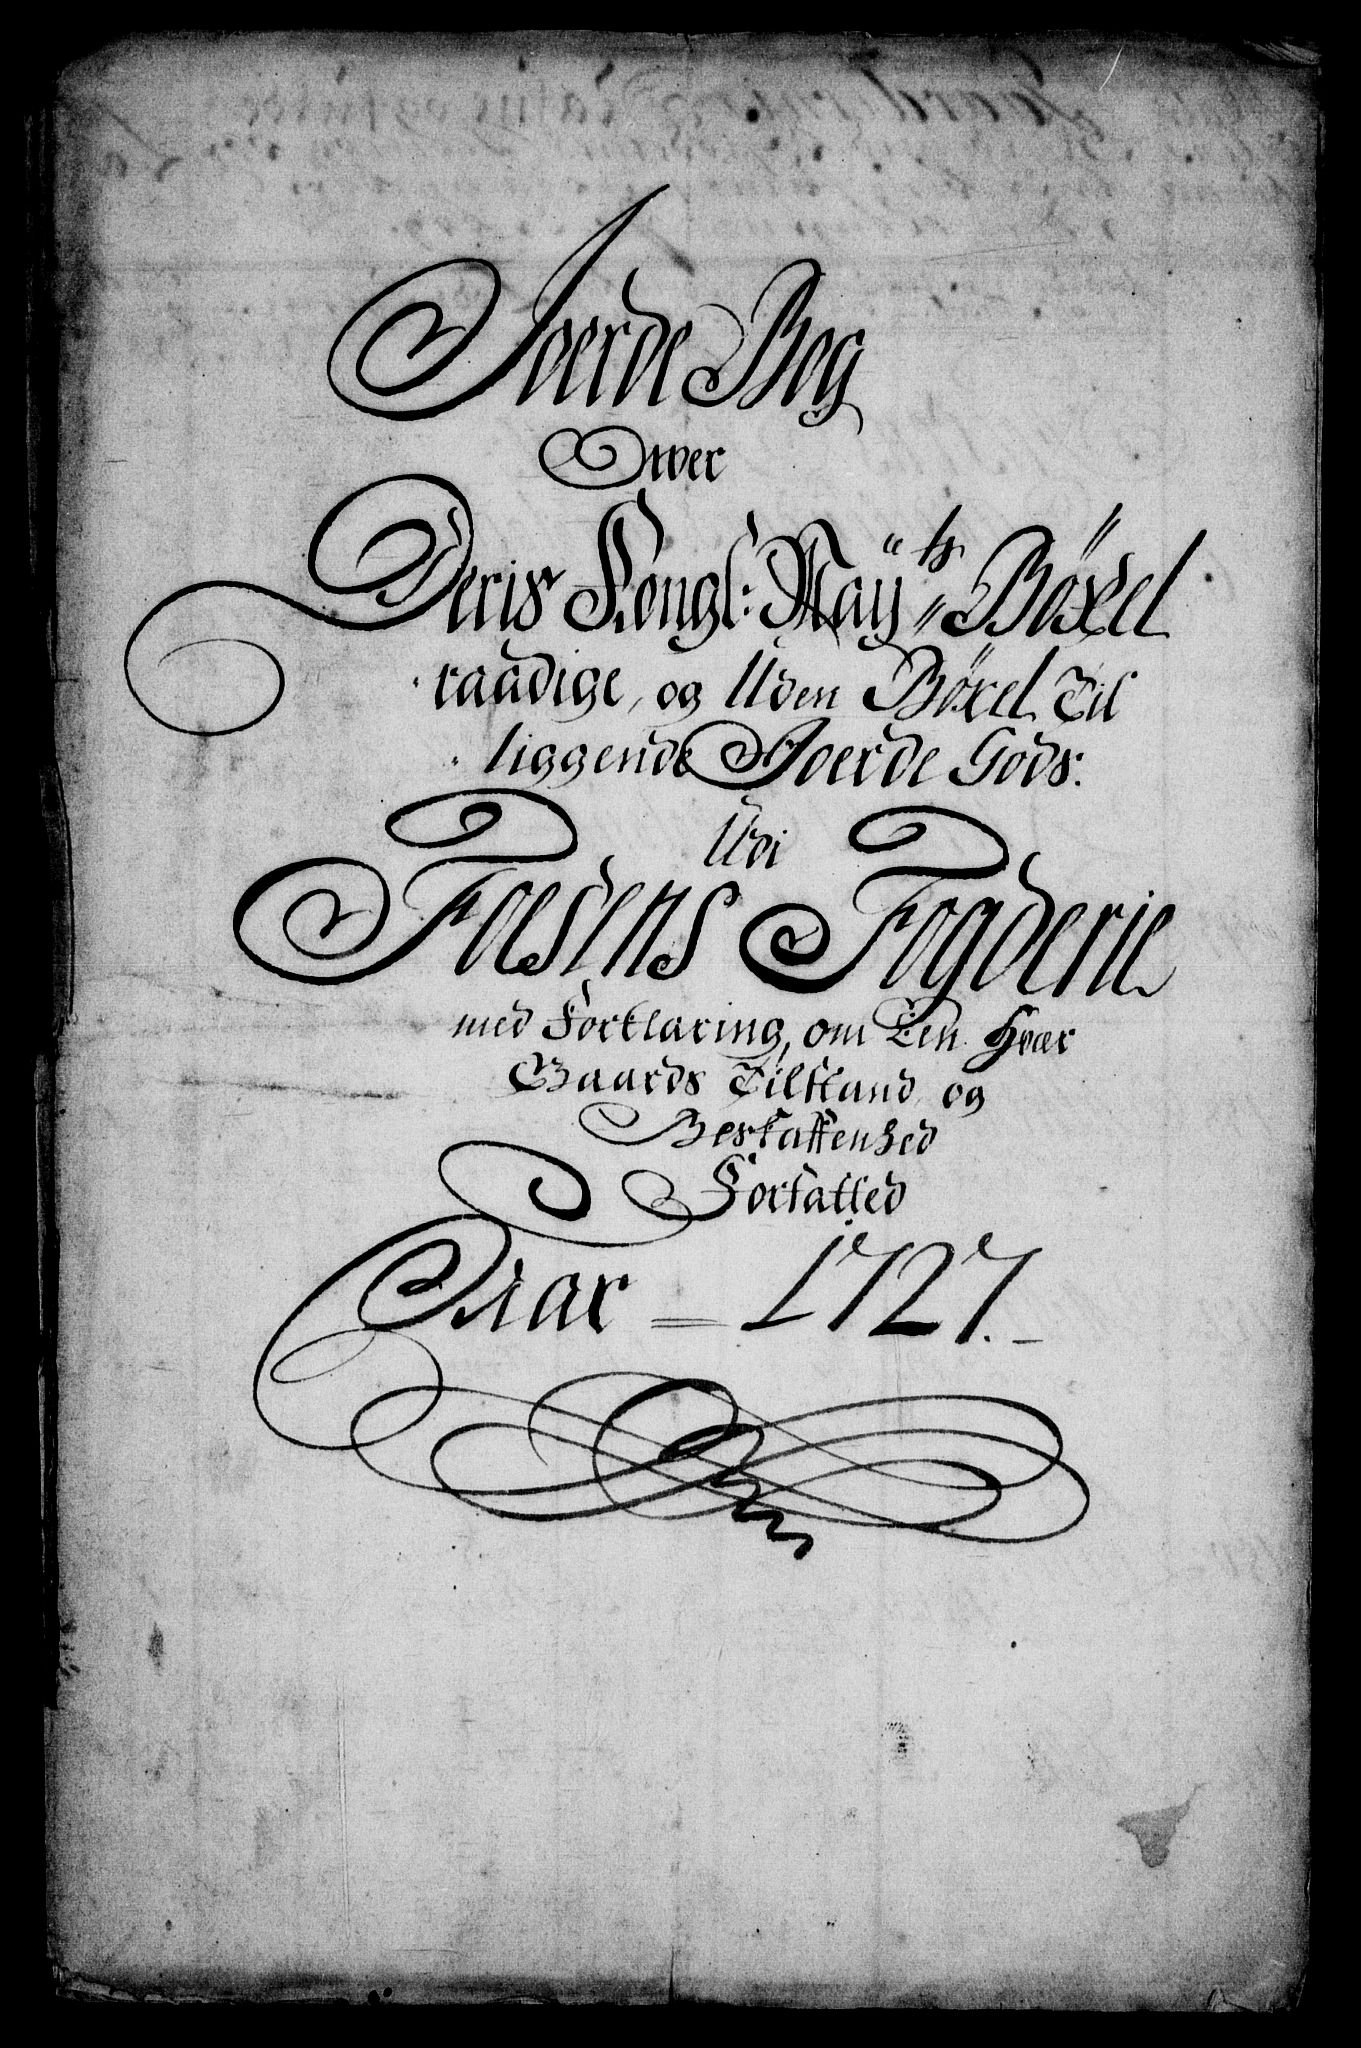 Joerde Bog
Over
Deris Kongl: Mayts Böxel
raadige, og Uden Böxel Til
liggende Joerde Gods.
Udi
Foesens Fogderie
med Forklaring, om En Hvær
Gaards Tilstand, og
Beskaffenhed
Forfatted
Aar = 1727.